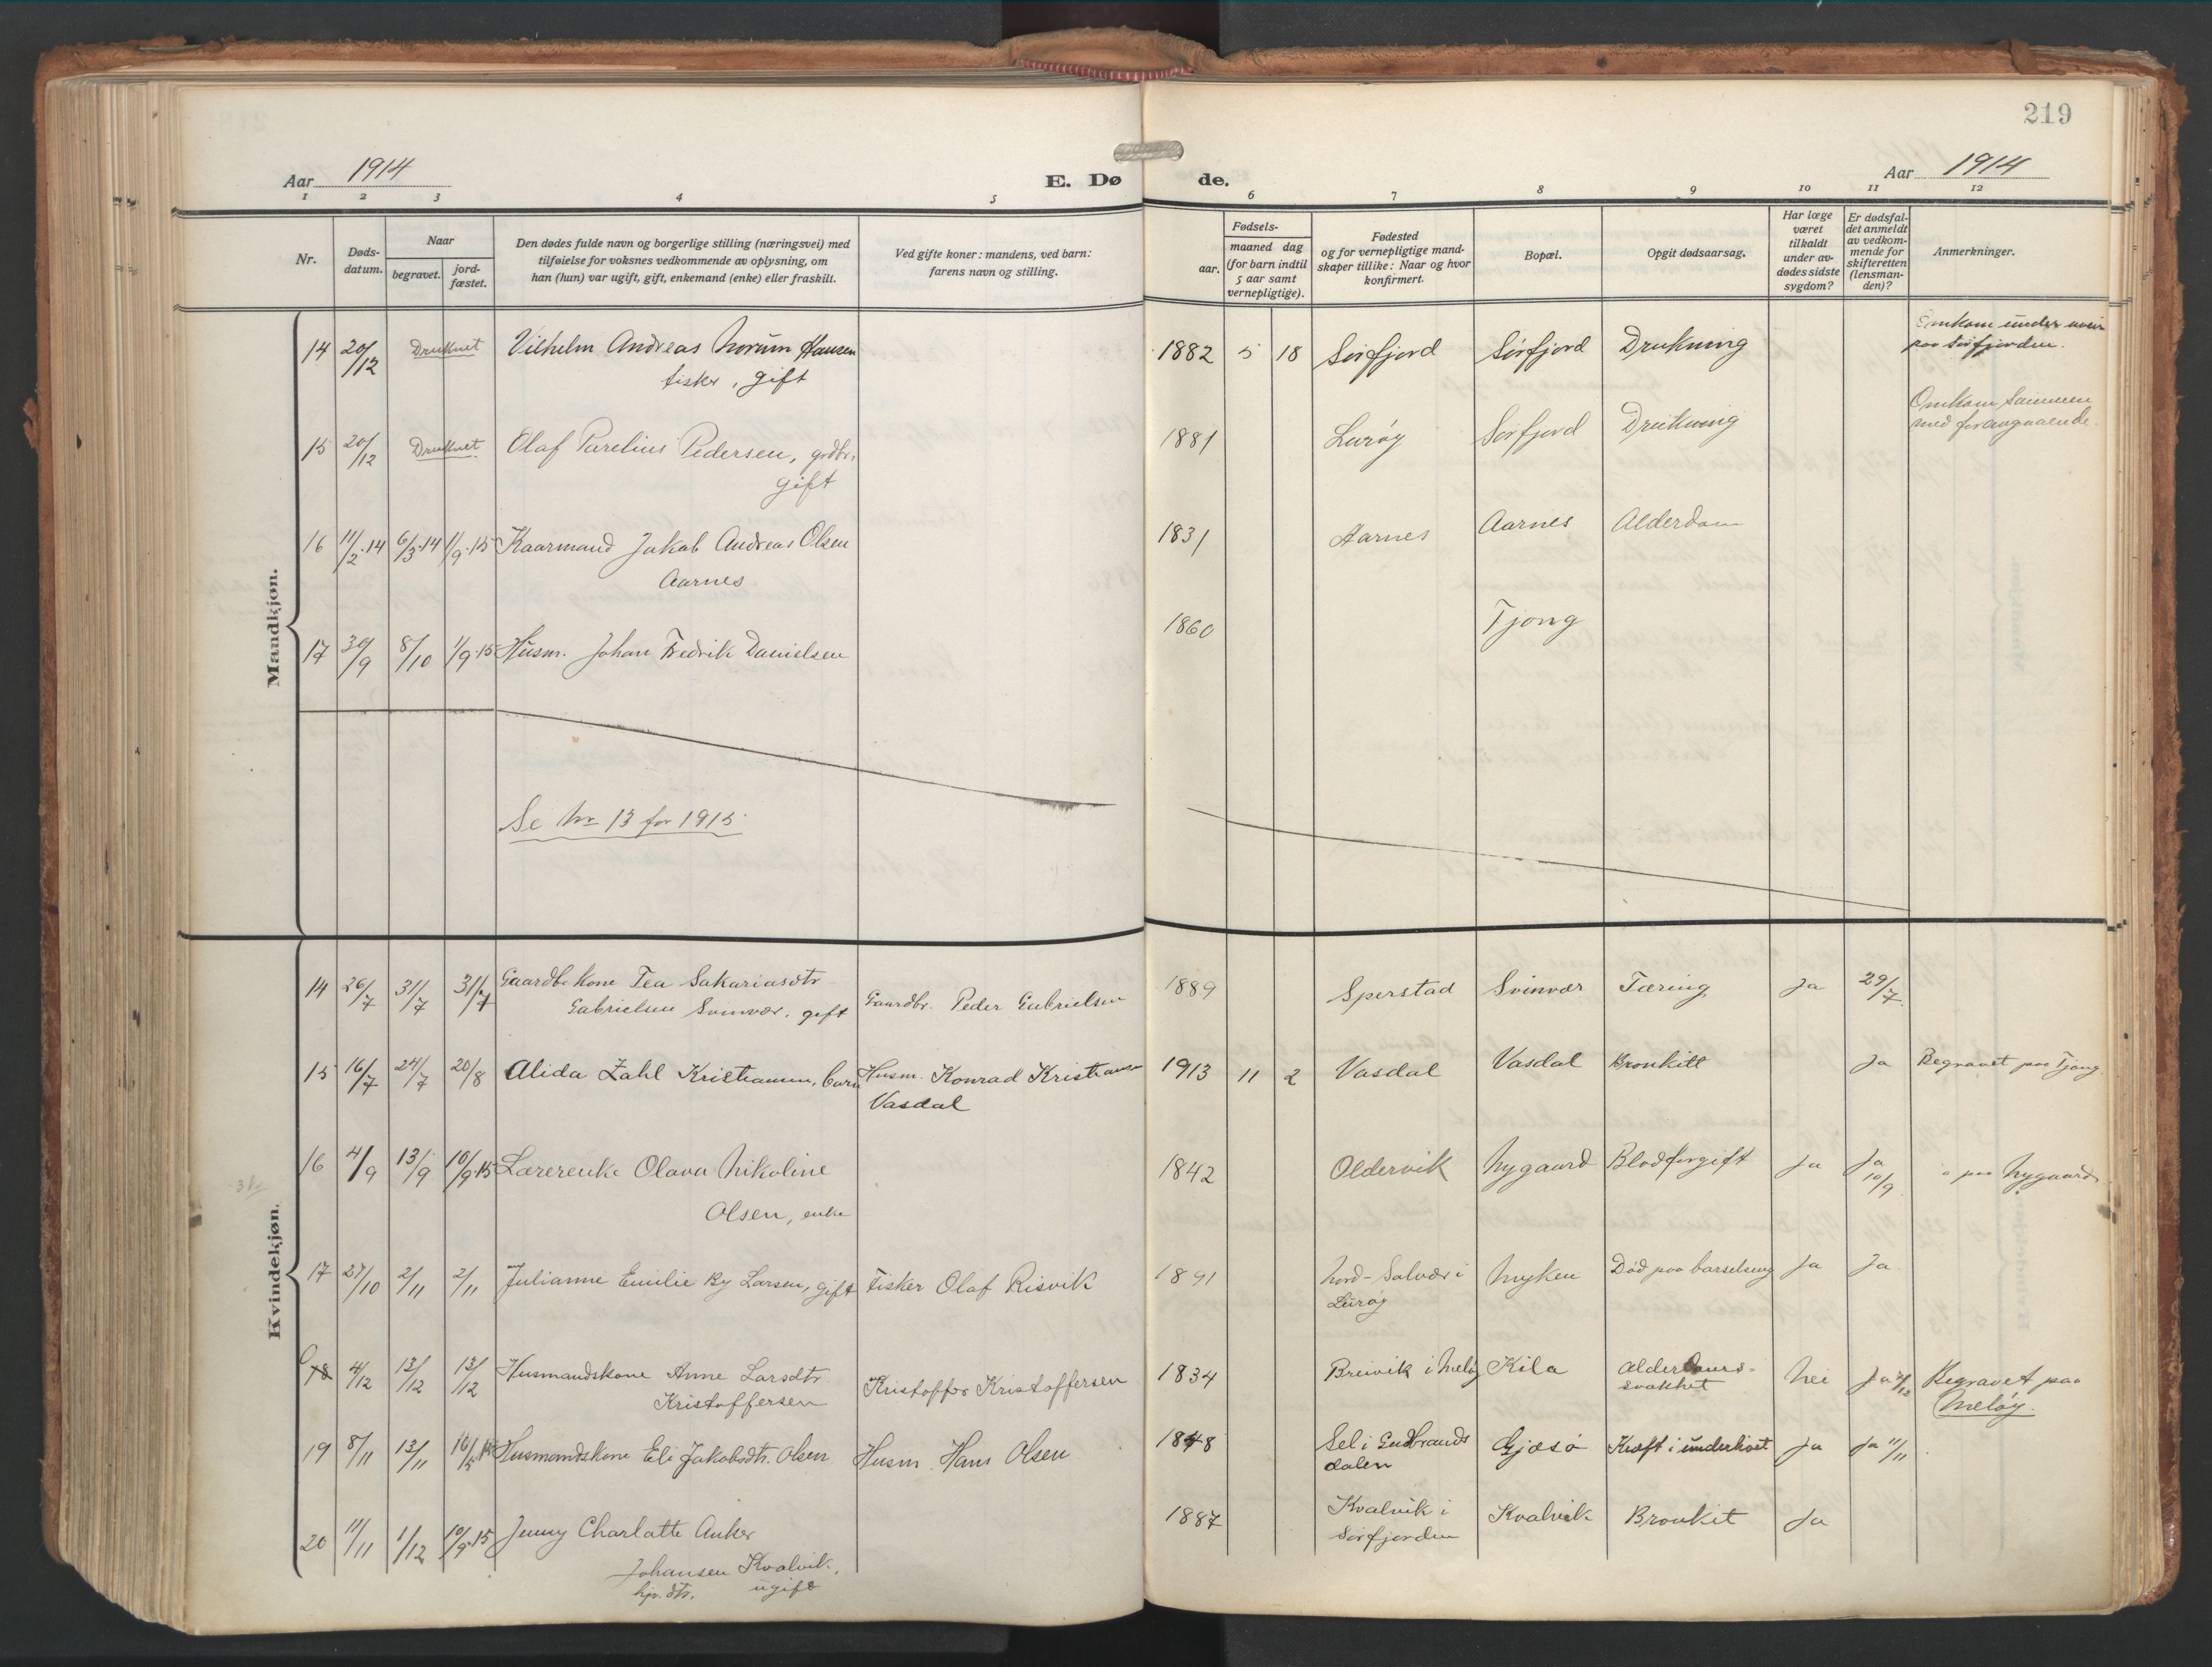 219
Aar 1914
E. Dø
de.
Aar 1914
1 2 3 4 5 6 7 8 9 10 11 12
Nr.
Døds-
datum.
Naar
begravet.
jord-
fæstet.
Den dødes fulde navn og borgerlige stilling (næringsvei) med
tilføielse for voksnes vedkommende av oplysning, om
han (hun) var ugift, gift, enkemand (enke) eller fraskilt.
Ved gifte koner: mandens, ved barn:
farens navn og stilling.
Fødsels-
aar.
maaned dag
(for barn indtil
5 aar samt
vernepligtige).
Fødested
og for vernepligtige mand-
skaper tillike: Naar og hvor
konfirmert.
Bopæl.
Opgit dødsaarsag.
Har læge
været
tilkaldt
under av-
dødes sidste
sygdom?
Er dødsfal-
det anmeldt
av vedkom-
mende for
skifteretten
(lensman-
den)?
Anmerkninger.
Mandkjøn.
14 20/12 Druknet Vilhelm Andreas Norum Hansen 1882 5 18 Sørfjord Sörfjord Drukning Omkom under uveir
fisker, gift paa Sörfjorden.
15 20/12 Druknet Olaf Parelius Pedersen, grdbr. 1881 Lurøy Sörfjord Drukning Omkom sammen
gift med forangaaende.
16 11/2.14 6/3.14 1/9.15 Kaarmand Jakob Andreas Olsen 1831 Aarnes Aarnes Alderdom
Aarnes
17 30/9 8/10 1/9.15 Husm. Johan Fredrik Danielsen 1860 Tjong
Se Nr 13 for 1915.
Kvindekjøn.
14 26/7 31/7 31/7 Gaardb. kone Tea Sakariasdtr 1889 Sperstad Svinvær Tæring Ja 29/7.
Gabrielsen Svinvær, gift Gaardbr. Peder Gabrielsen
15 16/7 24/7 20/8 Alida Zahl Kristiansen, barn Husm. Konrad Kristiansen 1913 11 2 Vasdal Vasdal Bronkitt Ja Begravet paa Tjong.
Vasdal
16 4/9 13/9 10/9.15 Lærerenke Olava Nikoline 1842 Oldervik Nygaard Blodforgift Ja Ja 10/9. paa Nygaard
Olsen, enke
17 27/10 2/11 2/11 Julianne Emilie By Larsen, gift Fisker Olaf Risvik 1891 Nord-Solvær i Myken Död paa barselseng Ja Ja
Luröy
18 4/12 13/12 13/12 Husmandskone Anne Larsdtr. Kristoffer Kristoffersen 1834 Breivik i Meløy Kila Alderdoms- Nei Ja Begravet paa
Kristoffersen svakhet Meløy.
19 8/11 13/11 Husmandskone Eli Jakobsdtr. Olsen Husm. Hans Olsen 1848 Sel i Gudbrands Gjæsö Kræft i underlivet Ja Ja 11/11
dalen
20 11/11 1/12 10/9.15 Jenny Charlotte Anker 1887 Kvalvik i Kvalvik Bronkit Ja
Sörfjorden
Johansen Kvalvik,
hjv. dtr. ugift